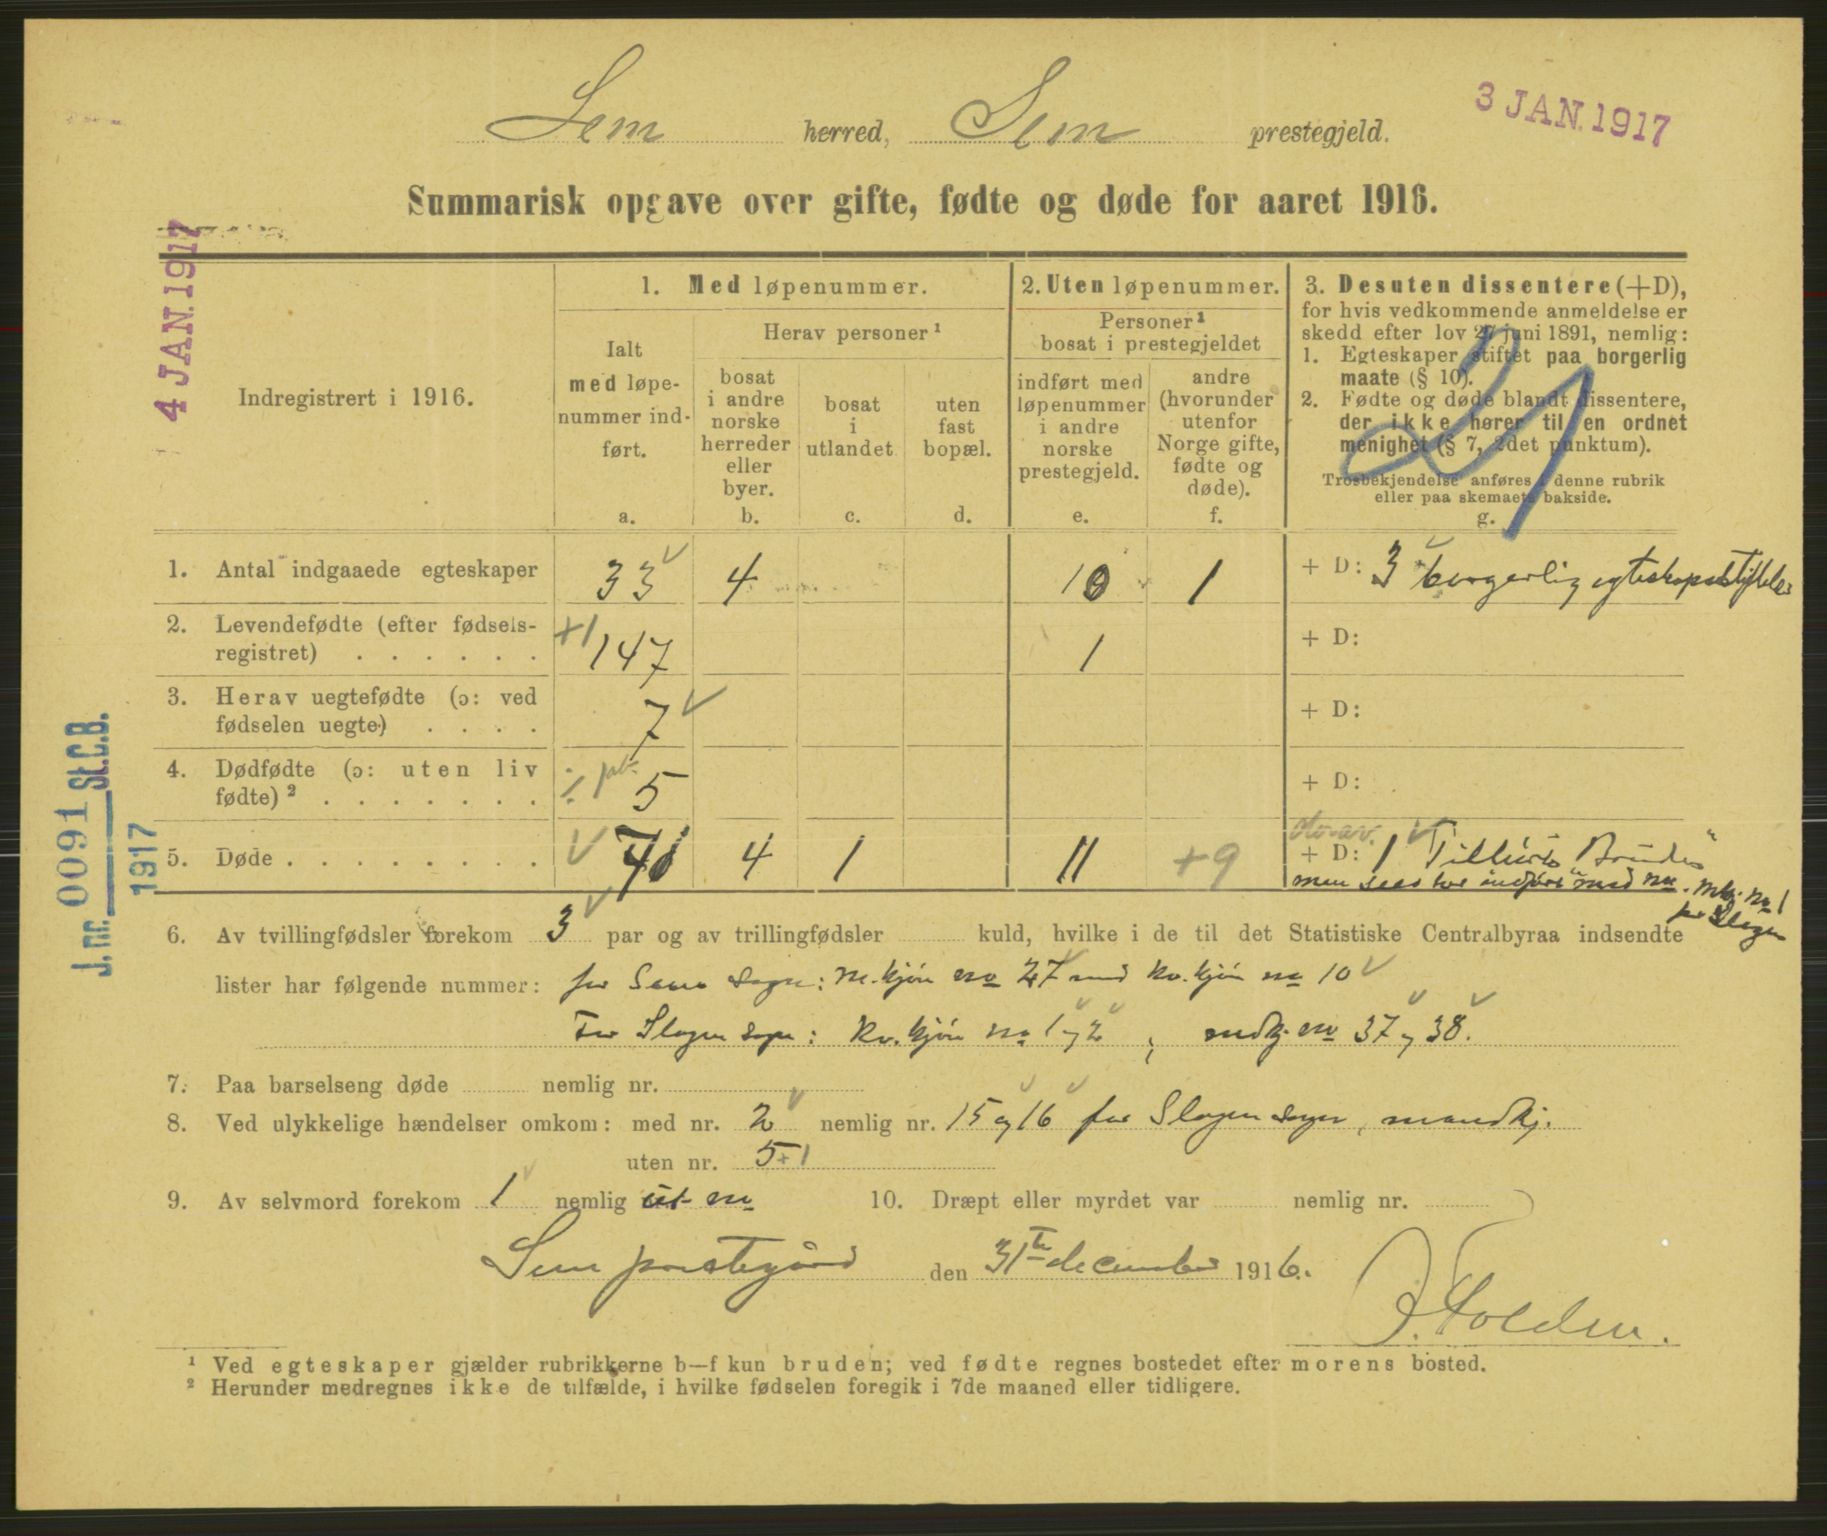 Sem herred, Sem prestegjeld.
3 JAN. 1917
Summarisk opgave over gifte, fødte og døde for aaret 1916.
4 JAN. 1917
J.nr. 0091 St.C.B.
1917
Indregistrert i 1916.
1. Med løpenummer.
Ialt
med løpe-
nummer ind-
ført.
a.
Herav personer ¹
bosat
i andre
norske
herreder
eller
byer.
b.
bosat
i
utlandet
c.
uten
fast
bopæl.
d.
2. Uten løpenummer.
Personer ¹
bosat i prestegjeldet
indført med
løpenummer
i andre
norske
prestegjeld.
e.
andre
(hvorunder
utenfor
Norge gifte,
fødte og
døde).
f.
3. Desuten dissentere (+D),
for hvis vedkommende anmeldelse er
skedd efter lov 27 juni 1891, nemlig:
1. Egteskaper stiftet paa borgerlig
maate (§ 10).
2. Fødte og døde blandt dissentere,
der ikke hører til en ordnet
menighet (§ 7, 2det punktum).
Trosbekjendelse anføres i denne rubrik
eller paa skemaets bakside.
g.
21
1. Antal indgaaede egteskaper 33 4 10 1 + D: 3 borgerlig egteskapsstiftelse
2. Levendefødte (efter fødsels-
registret) . . . . . . +1 147 1 + D:
3. Herav uegtefødte (ɔ: ved
fødselen uegte) . . . . 7 + D:
4. Dødfødte (ɔ: uten liv
fødte) ² . . . . . . . 5 + D:
5. Døde . . . . . . . . . 4 1 11 +9 + D: 1
men indført med no. no 1
for Slagen
6. Av tvillingfødsler forekom 3 par og av trillingfødsler kuld, hvilke i de til det Statistiske Centralbyraa indsendte
lister har følgende nummer: for Sem sogn: m.kjøn no 27 med kv.kjøn no 10
For Slagen sogn: kv.kjøn no 1 og 2, mdkj. no 37 og 38.
7. Paa barselseng døde nemlig nr.
8. Ved ulykkelige hændelser omkom: med nr. 2 nemlig nr. 15 og 16 for Slagen sogn, mandkj.
uten nr. 5+1
9. Av selvmord forekom 1 nemlig ut. no 10. Dræpt eller myrdet var nemlig nr.
Sem prestegård den 31te december 1916.
¹ Ved egteskaper gjælder rubrikkerne b—f kun bruden; ved fødte regnes bostedet efter morens bosted.
² Herunder medregnes ikke de tilfælde, i hvilke fødselen foregik i 7de maaned eller tidligere.